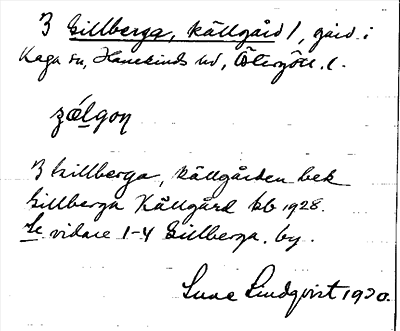 3 Gillberga, Källgård 1, gård i
Kaga sn, Hanekinds hd, Östergötl. l.
3 Gillberga, Källgården bek
Gillberga Källgård kb 1928.
Se vidare 1-4 Gillberga, by.
Sune Lindqvist 1930.